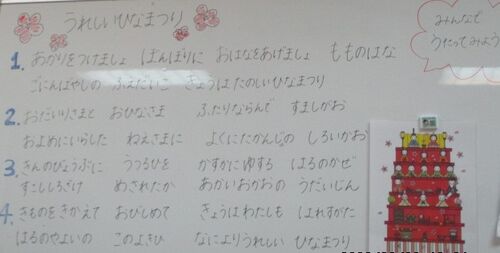 うれしいひなまつり
みんなで
うたってみよう
1. あかりをつけましょ ぼんぼりに おはなをあげましょ もものはな
ごにんばやしの ふえだいこ きょうはたのしいひなまつり
2. おだいりさまと おひなさま ふたりならんで すましがお
およめにいらした ねえさまに よくにたかんじの しろいかお
3. きんのびょうぶに うつるひを かすかにゆする はるのかぜ
すこししろざけ めされたか あかいおかおの うだいじん
4. きものをきかえて おびしめて きょうはわたしも はれすがた
はるのやよいの このよきひ なによりうれしい ひなまつり